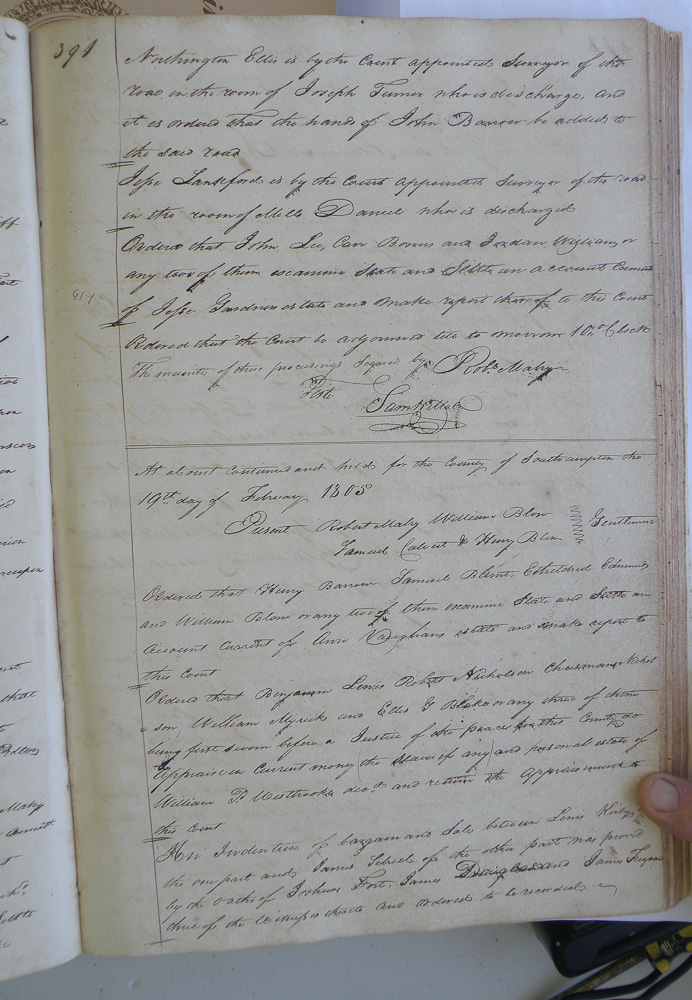 391
Northington Ellis is by the Court appointed Surveyor of the
road in the room of Joseph Turner who is discharge, and
it is ordered that the hands of John Barrow be added to
the said road
Jesse Lankford is by the Court appointed Surveyor of the road
in the room of Mills Daniel who is discharged
Ordered that John Lee, Carr Bowers and Jordan Williams, or
any two of them examine State and Settle an account Current
614
of Jesse Gardners estate and make report thereof to this Court
Ordered that the Court be adjourned till to morrow 10 oClock
The minutes of these proceedings Signed by Robt Mabry
Teste
Saml Kello
At a Court continued and held for the County of Southampton the
19th day of February 1805
Present Robert Mabry William Blow
Gentlemen
Samuel Calvert & Henry Blow
Ordered that Henry Barrow Samuel Blunt, Etheldred Edmunds
and William Blow or any two of them examine State and Settle an
Account Current of Ann Vaughans estate and make report to
this Court
Ordered that Benjamin Lewis Robert Nicholson Chrisman Nichol
=son, William Myrick and Ellis G Blake or any three of them
being first sworn before a Justice of the peace for this County do
Appraise in Current money the slaves if any and personal estate of
William P. Westbrook decd and return the Appraisement to
this Court
An Indenture of bargain and Sale between Lewis Kirby of
the one part and James of the other part was proved
by the oaths of Joshua Fort, James Douglas and James
three of the Witnesses thereto and ordered to be recorded